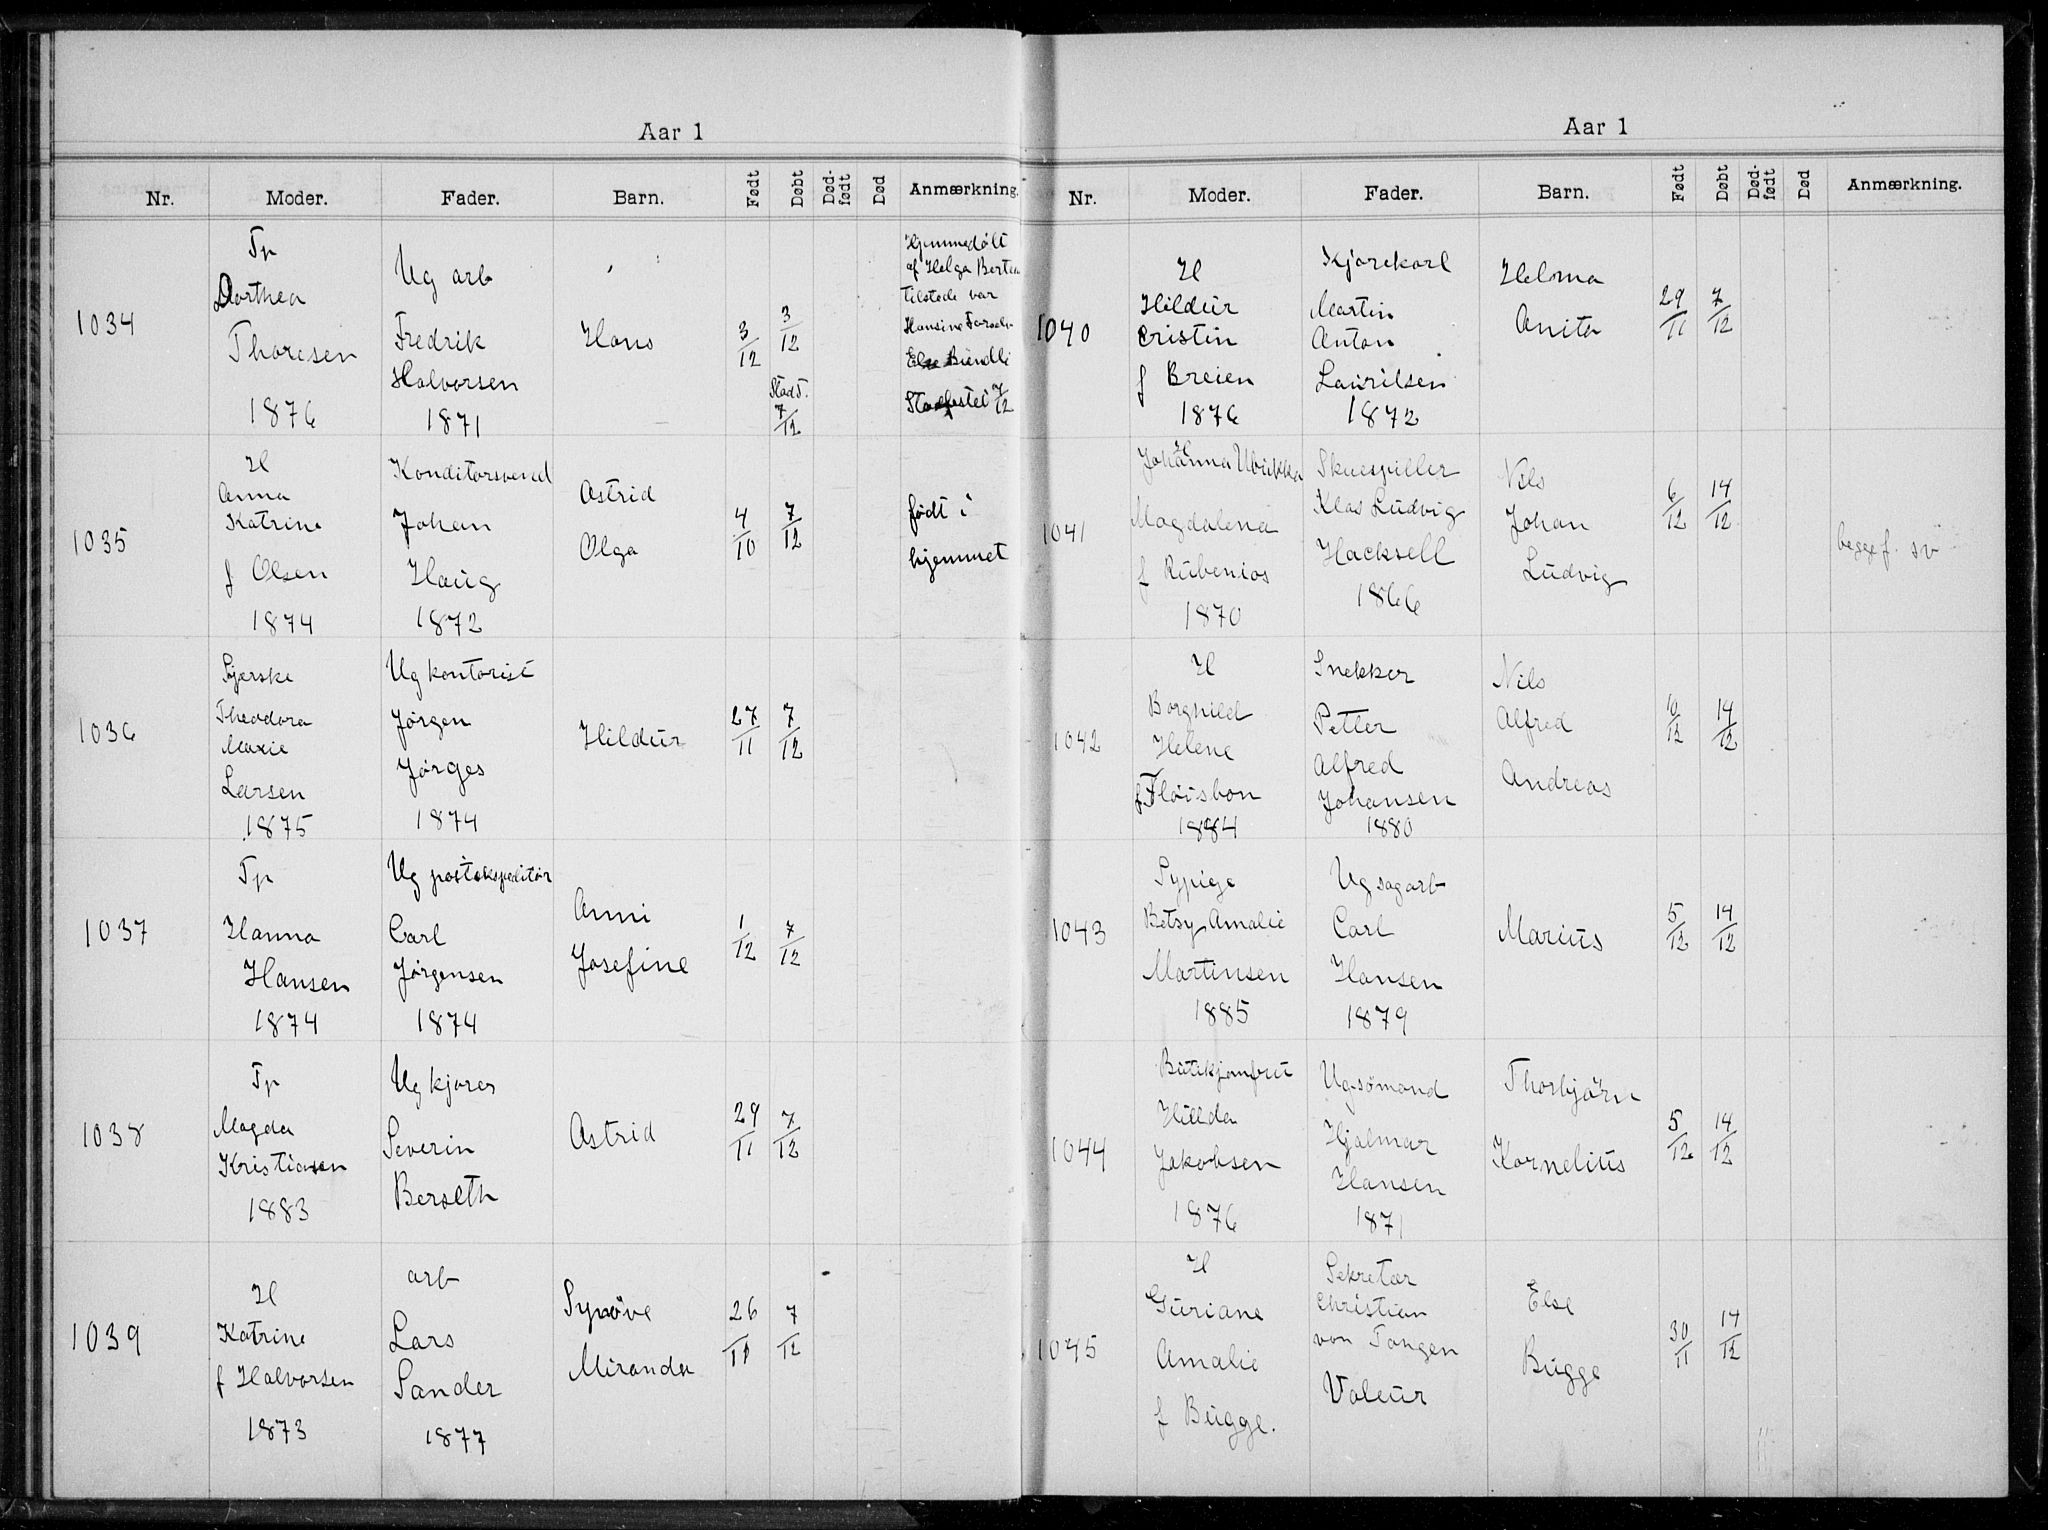 Aar 1
Nr. Moder. Fader. Barn. Født Døbt Død-født Død Anmærkning.
1034
Tp
Dorthea
Thoresen
1876
Ug arb
Fredrik
Halvorsen
1871
Hans
3/12
3/12
Stadf.
7/12
Hjemmedøbt
af Helga
tilstede var
Hansine
Else
7/12
1035
H
Anna
Katrine
f Olsen
1874
Konditorsvend
Johan
Haug
1872
Astrid
Olga
4/10
7/12
født i
hjemmet
1036
Syerske
Theodora
Marie
Larsen
1875
Ug kontorist
Jørgen
Jørges
1874
Hildur
27/11
7/12
1037
Tp
Hanna
Hansen
1874
Ug postekspeditør
Carl
Jørgensen
1874
Anni
Josefine
1/12
7/12
1038
Tp
Magda
Kristiansen
1883
Ug kjører
Severin
Berseth
Astrid
29/11
7/12
1039
H
Katrine
f Halvorsen
1873
arb
Lars
Sander
1877
Synöve
Miranda
26/11
7/12
Aar 1
Nr. Moder. Fader. Barn. Født Døbt Død-født Død Anmærkning.
1040
H
Hildur
Cristin
f Breien
1876
Kjørekarl
Martin
Anton
Lauritsen
1872
Helma
Anita
29/11
7/12
1041
H
Johanna Ulrikka
Magdalena
f Rubenios
1870
Skuespiller
Klas Ludvig
Hacksell
1866
Nils
Johan
Ludvig
6/12
14/12
begge f. sv
1042
H
Borghild
Helene
f Fløisbon
1884
Snekker
Petter
Alfred
Johansen
1880
Nils
Alfred
Andreas
10/12
14/12
1043
Sypige
Betsy Amalie
Martinsen
1885
Ug sagarb
Carl
Hansen
1879
Marius
5/12
14/12
1044
Butikjomfru
Hilda
Jakobsen
1876
Ug sömand
Hjalmar
Hansen
1871
Thorbjørn
Kornelius
5/12
14/12
1045
H
Guriane
Amalie
f Bugge.
Sekretær
Christian
von Tangen
Valeur
Else
Bugge
30/11
14/12